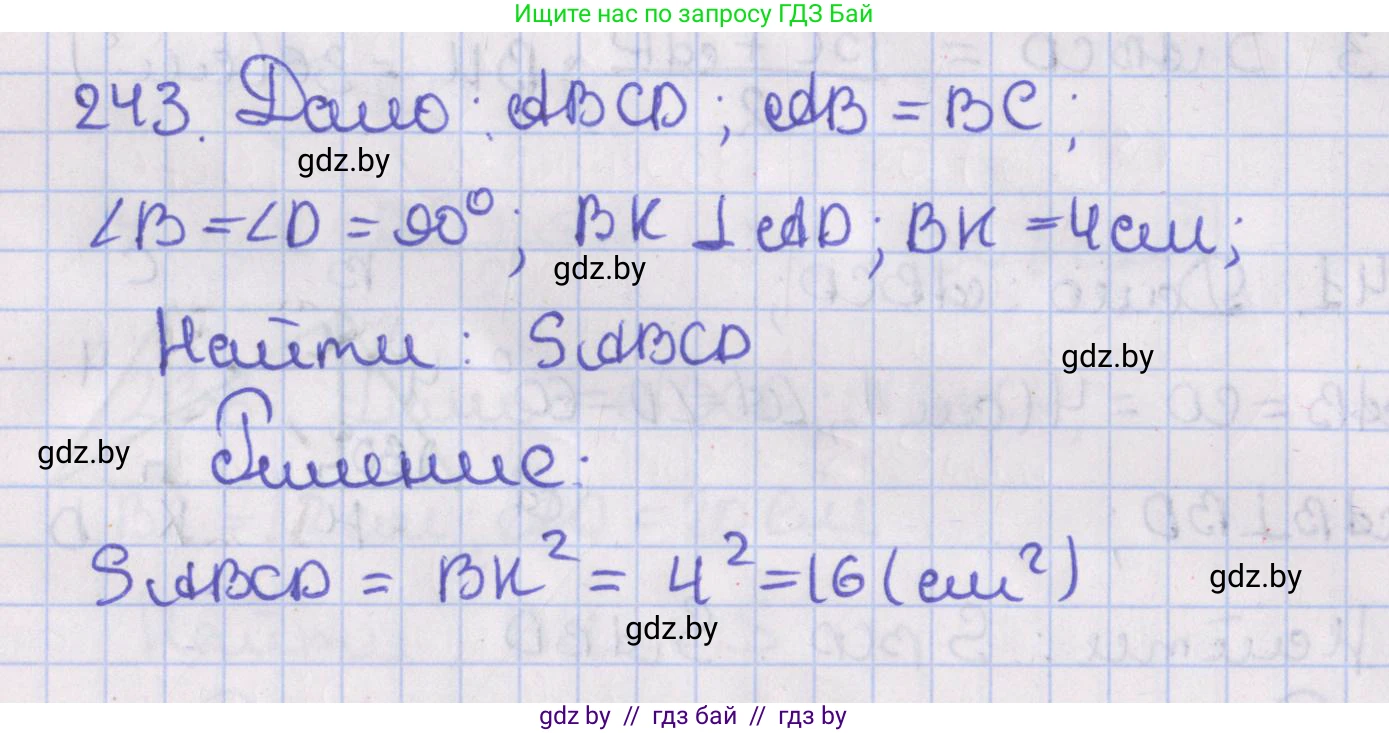 Ищите нас по запросу ГДЗ Бай
243. Дано: ABCD; AB = BC;
gdz.by
∠B = ∠D = 90°; BK ⊥ AD; BK = 4 см;
gdz.by
Найти: SABCD
gdz.by
Решение:
gdz.by
SABCD = BK² = 4² = 16 (см²)
gdz.by
gdz.by
gdz.by // гдз бай // гдз by